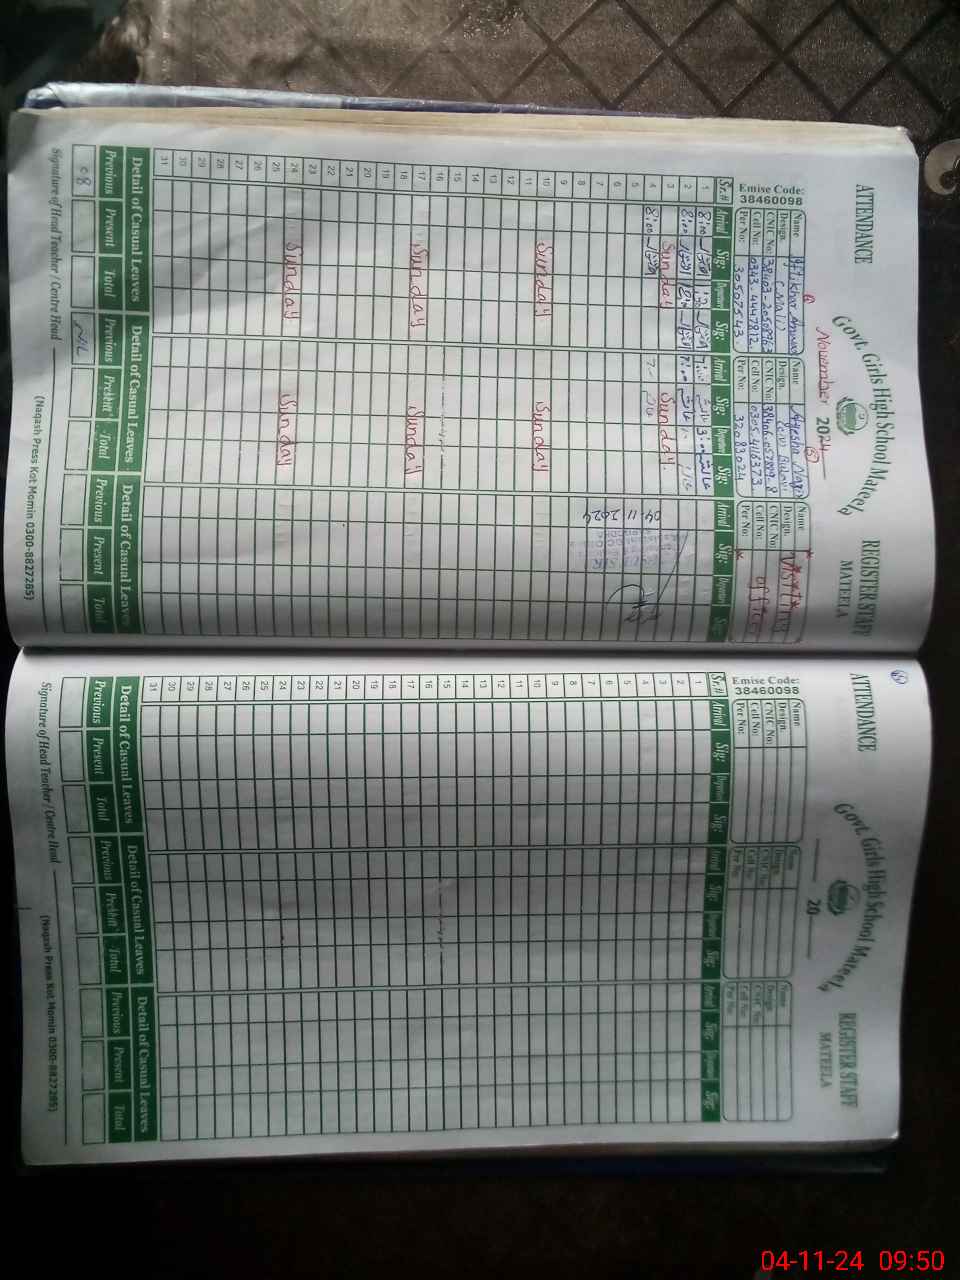 ATTENDANCE
Govt. Girls High School Mateela
REGISTER STAFF
MATEELA
November 2024
Emise Code:
38460098
Name Iftikhar Ahmad
Design.
CNIC No:
Cell No: 0343-4447812
Per No: 30507543
Name Ayesha Nazir
Design.
CNIC No:
Cell No: 0305-4116373
Per No: 32083024
Name Visiting
Design.
CNIC No: officer
Cell No:
Per No:
Sr.# Arrival Sig: Departure Sig: Arrival Sig: Departure Sig: Arrival Sig: Departure Sig:
1 8:00 7:00
2 8:00 7:00
3 Sunday Sunday
4 8:00 04-11-2024
5
6
7
8
9
10 Sunday Sunday
11
12
13
14
15
16
17 Sunday Sunday
18
19
20
21
22
23
24 Sunday Sunday
25
26
27
28
29
30
31
Detail of Casual Leaves Detail of Casual Leaves Detail of Casual Leaves
Previous Present Total Previous Present Total Previous Present Total
08 NIL
Signature of Head Teacher / Centre Head
(Naqash Press Kot Momin 0300-8827285)
ATTENDANCE
Govt. Girls High School Mateela
REGISTER STAFF
MATEELA
20
Emise Code:
38460098
Name
Design.
CNIC No:
Cell No:
Per No:
Name
Design.
CNIC No:
Cell No:
Per No:
Name
Design.
CNIC No:
Cell No:
Per No:
Sr.# Arrival Sig: Departure Sig: Arrival Sig: Departure Sig: Arrival Sig: Departure Sig:
1
2
3
4
5
6
7
8
9
10
11
12
13
14
15
16
17
18
19
20
21
22
23
24
25
26
27
28
29
30
31
Detail of Casual Leaves Detail of Casual Leaves Detail of Casual Leaves
Previous Present Total Previous Present Total Previous Present Total
Signature of Head Teacher / Centre Head
(Naqash Press Kot Momin 0300-8827285)
04-11-24 09:50